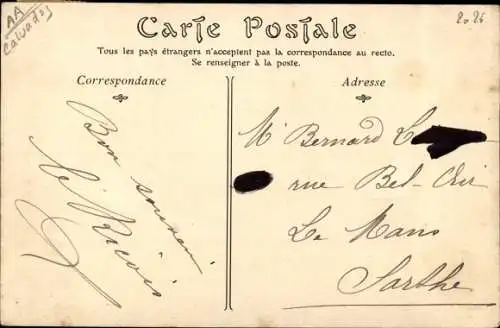 AA
Calvados
2.25
Carte Postale
Tous les pays étrangers n'acceptent pas la correspondance au recto.
Se renseigner à la poste.
Correspondance
Bon souvenir
Adresse
Mr Bernard
rue Bel-Air
Le Mans
Sarthe